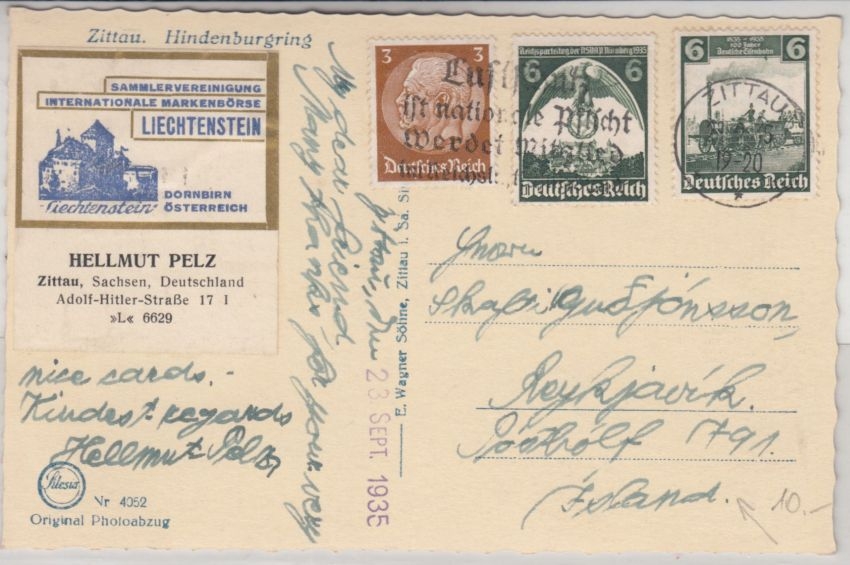 Zittau. Hindenburgring
SAMMLERVEREINIGUNG
INTERNATIONALE MARKENBÖRSE
LIECHTENSTEIN
Liechtenstein
DORNBIRN
ÖSTERREICH
HELLMUT PELZ
Zittau, Sachsen, Deutschland
Adolf-Hitler-Straße 17 I
»L« 6629
Zittau, den 23 SEPT. 1935
My dear friend
Many thanks for your very
nice cards.-
Kindest regards
Hellmut Pelz
Silesia
Nr 4052
Original Photoabzug
E. Wagner Söhne, Zittau i. Sa.
3
Deutsches Reich
Reichsparteitag der NSDAP Nürnberg 1935
6 6
Deutsches Reich
1835 - 1935
100 Jahre
Deutsche Eisenbahn
6 6
Deutsches Reich
Luftschutz
ist nationale Pflicht
Werdet Mitglied
ZITTAU
19-20
Herrn
Skafti Guðjónsson
Reykjavík.
Pósthólf 791.
Ísland.
10.-